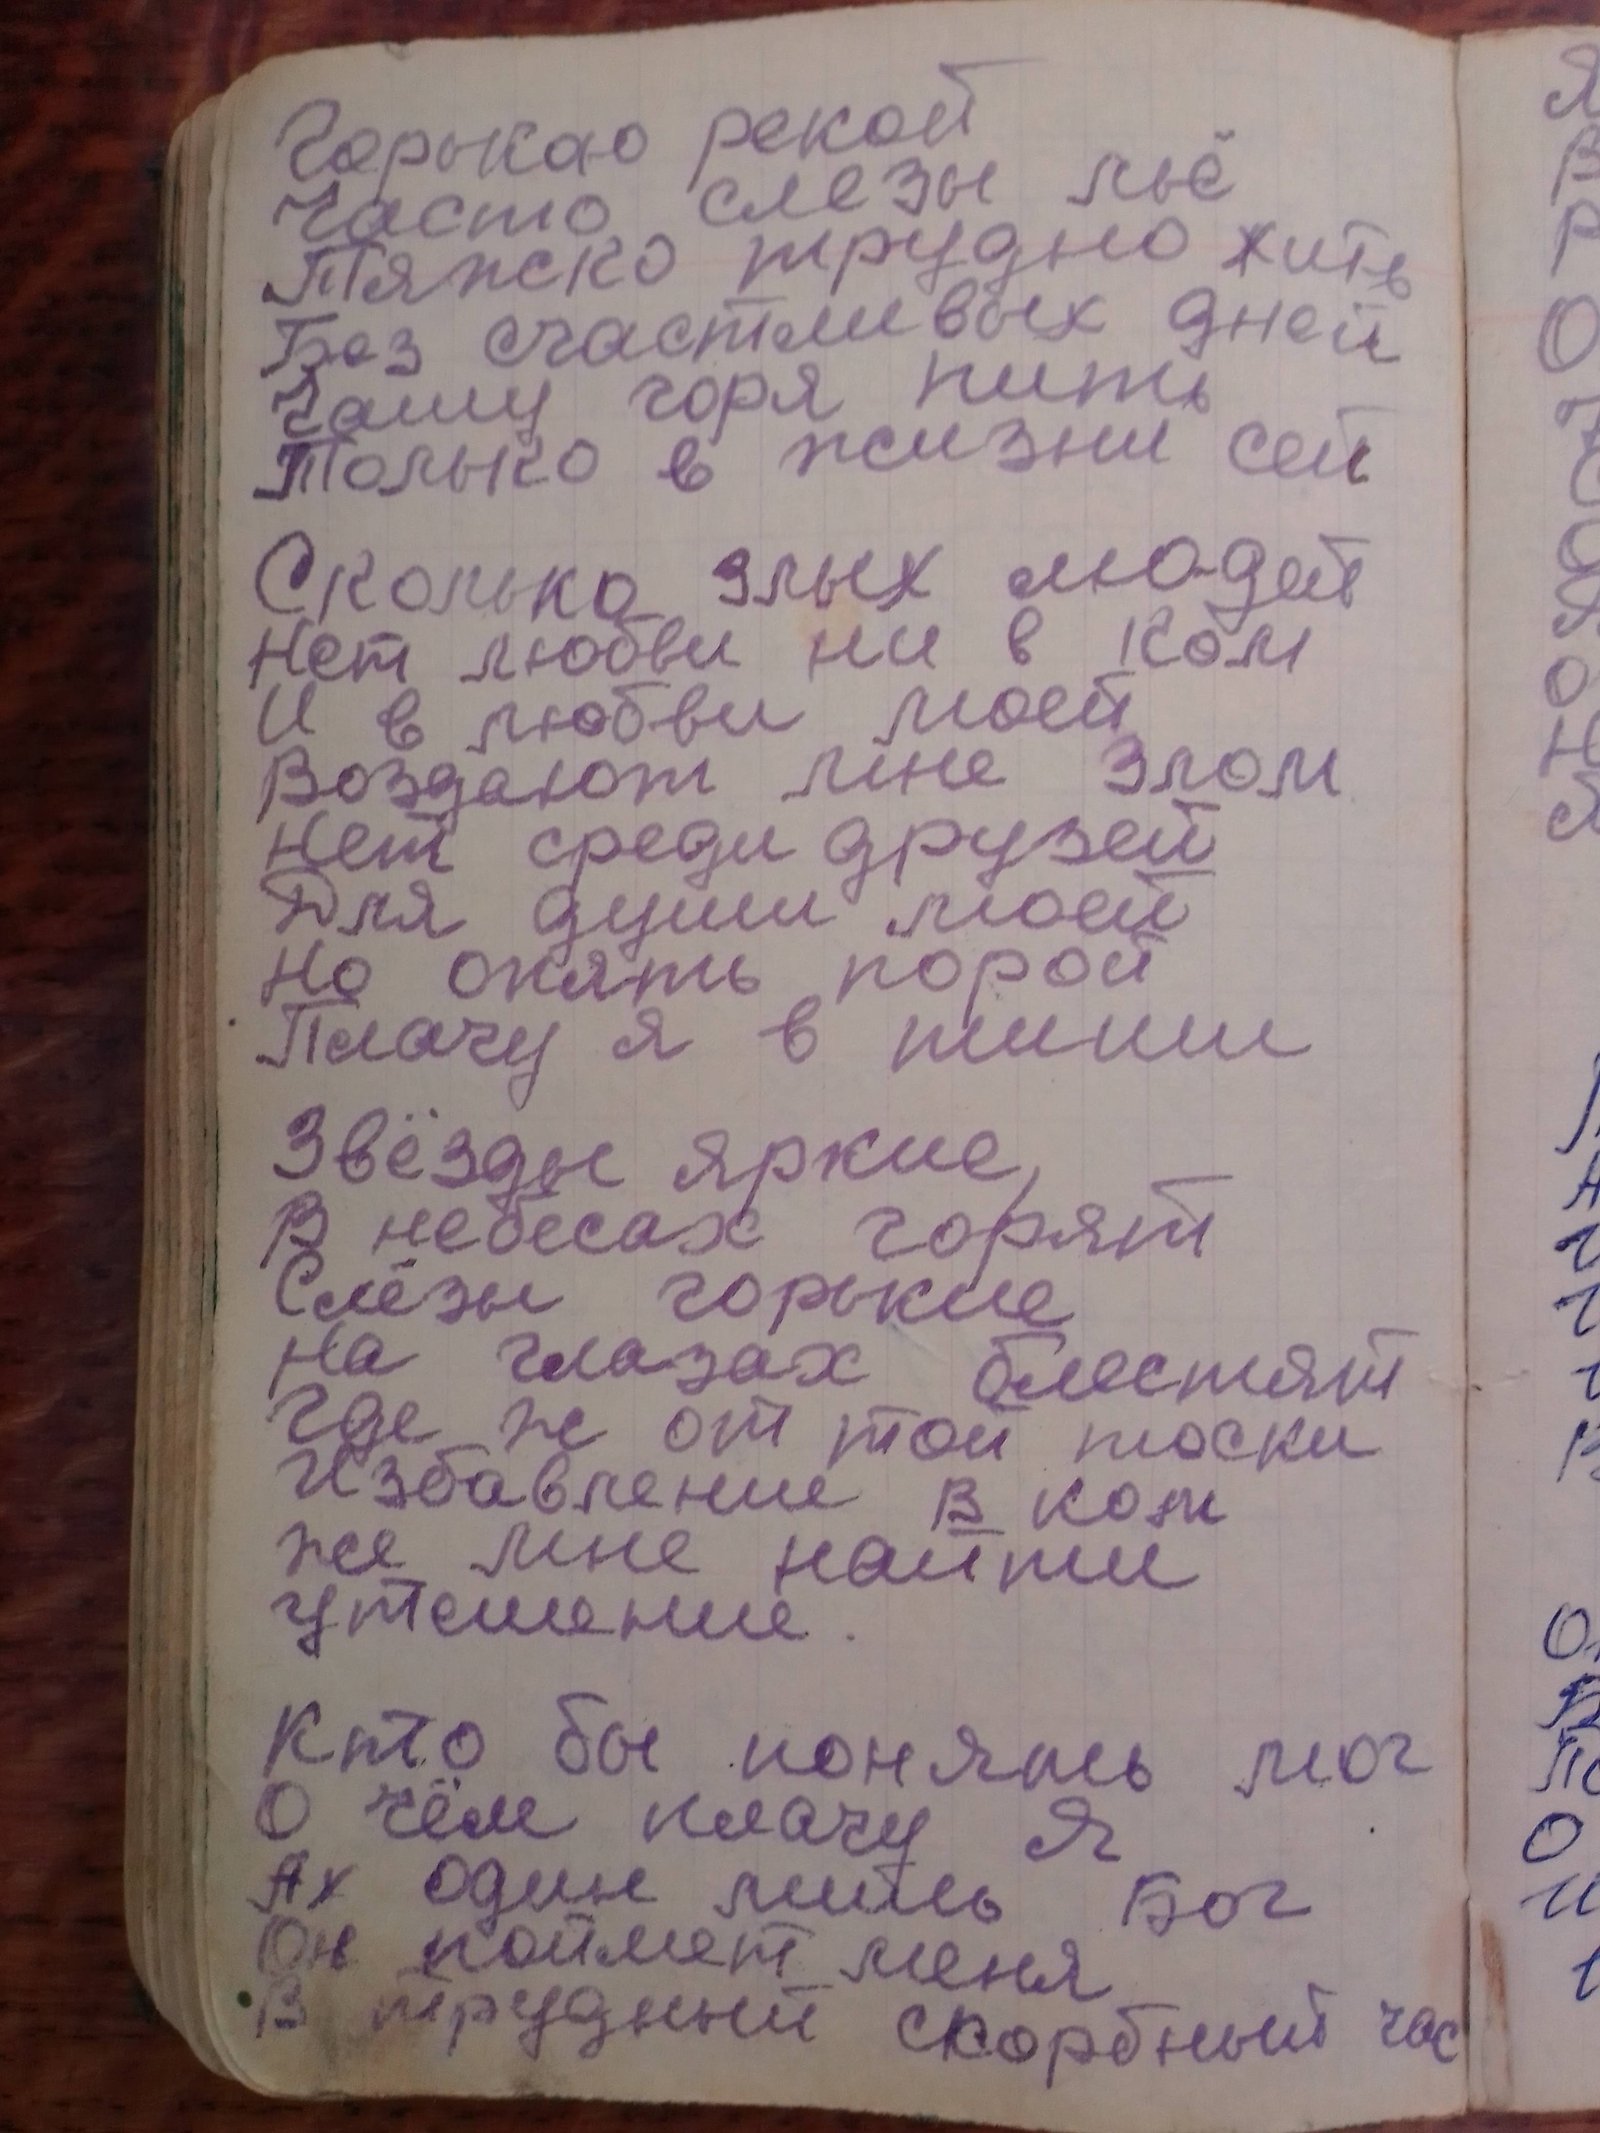 Горькаю рекой
Часто слезы льё
Тяжско трудно жить
Без счастливых дней
Чашу горя пить
Только в жизни сей
Сколько злых людей
Нет любви ни в ком
И в любви моей
Воздают мне злом
Нет среди друзей
Для души моей
Но опять порой
Плачу я в тиши
Звёзды яркие,
В небесах горят
Слёзы горькие
На глазах блестят
Где ж от той тоски
Избавление в ком
же мне найти
утешение.
Кто бы понять мог
О чём плачу я
Ах один лишь Бог
Он поймет меня
В трудный скорбный час